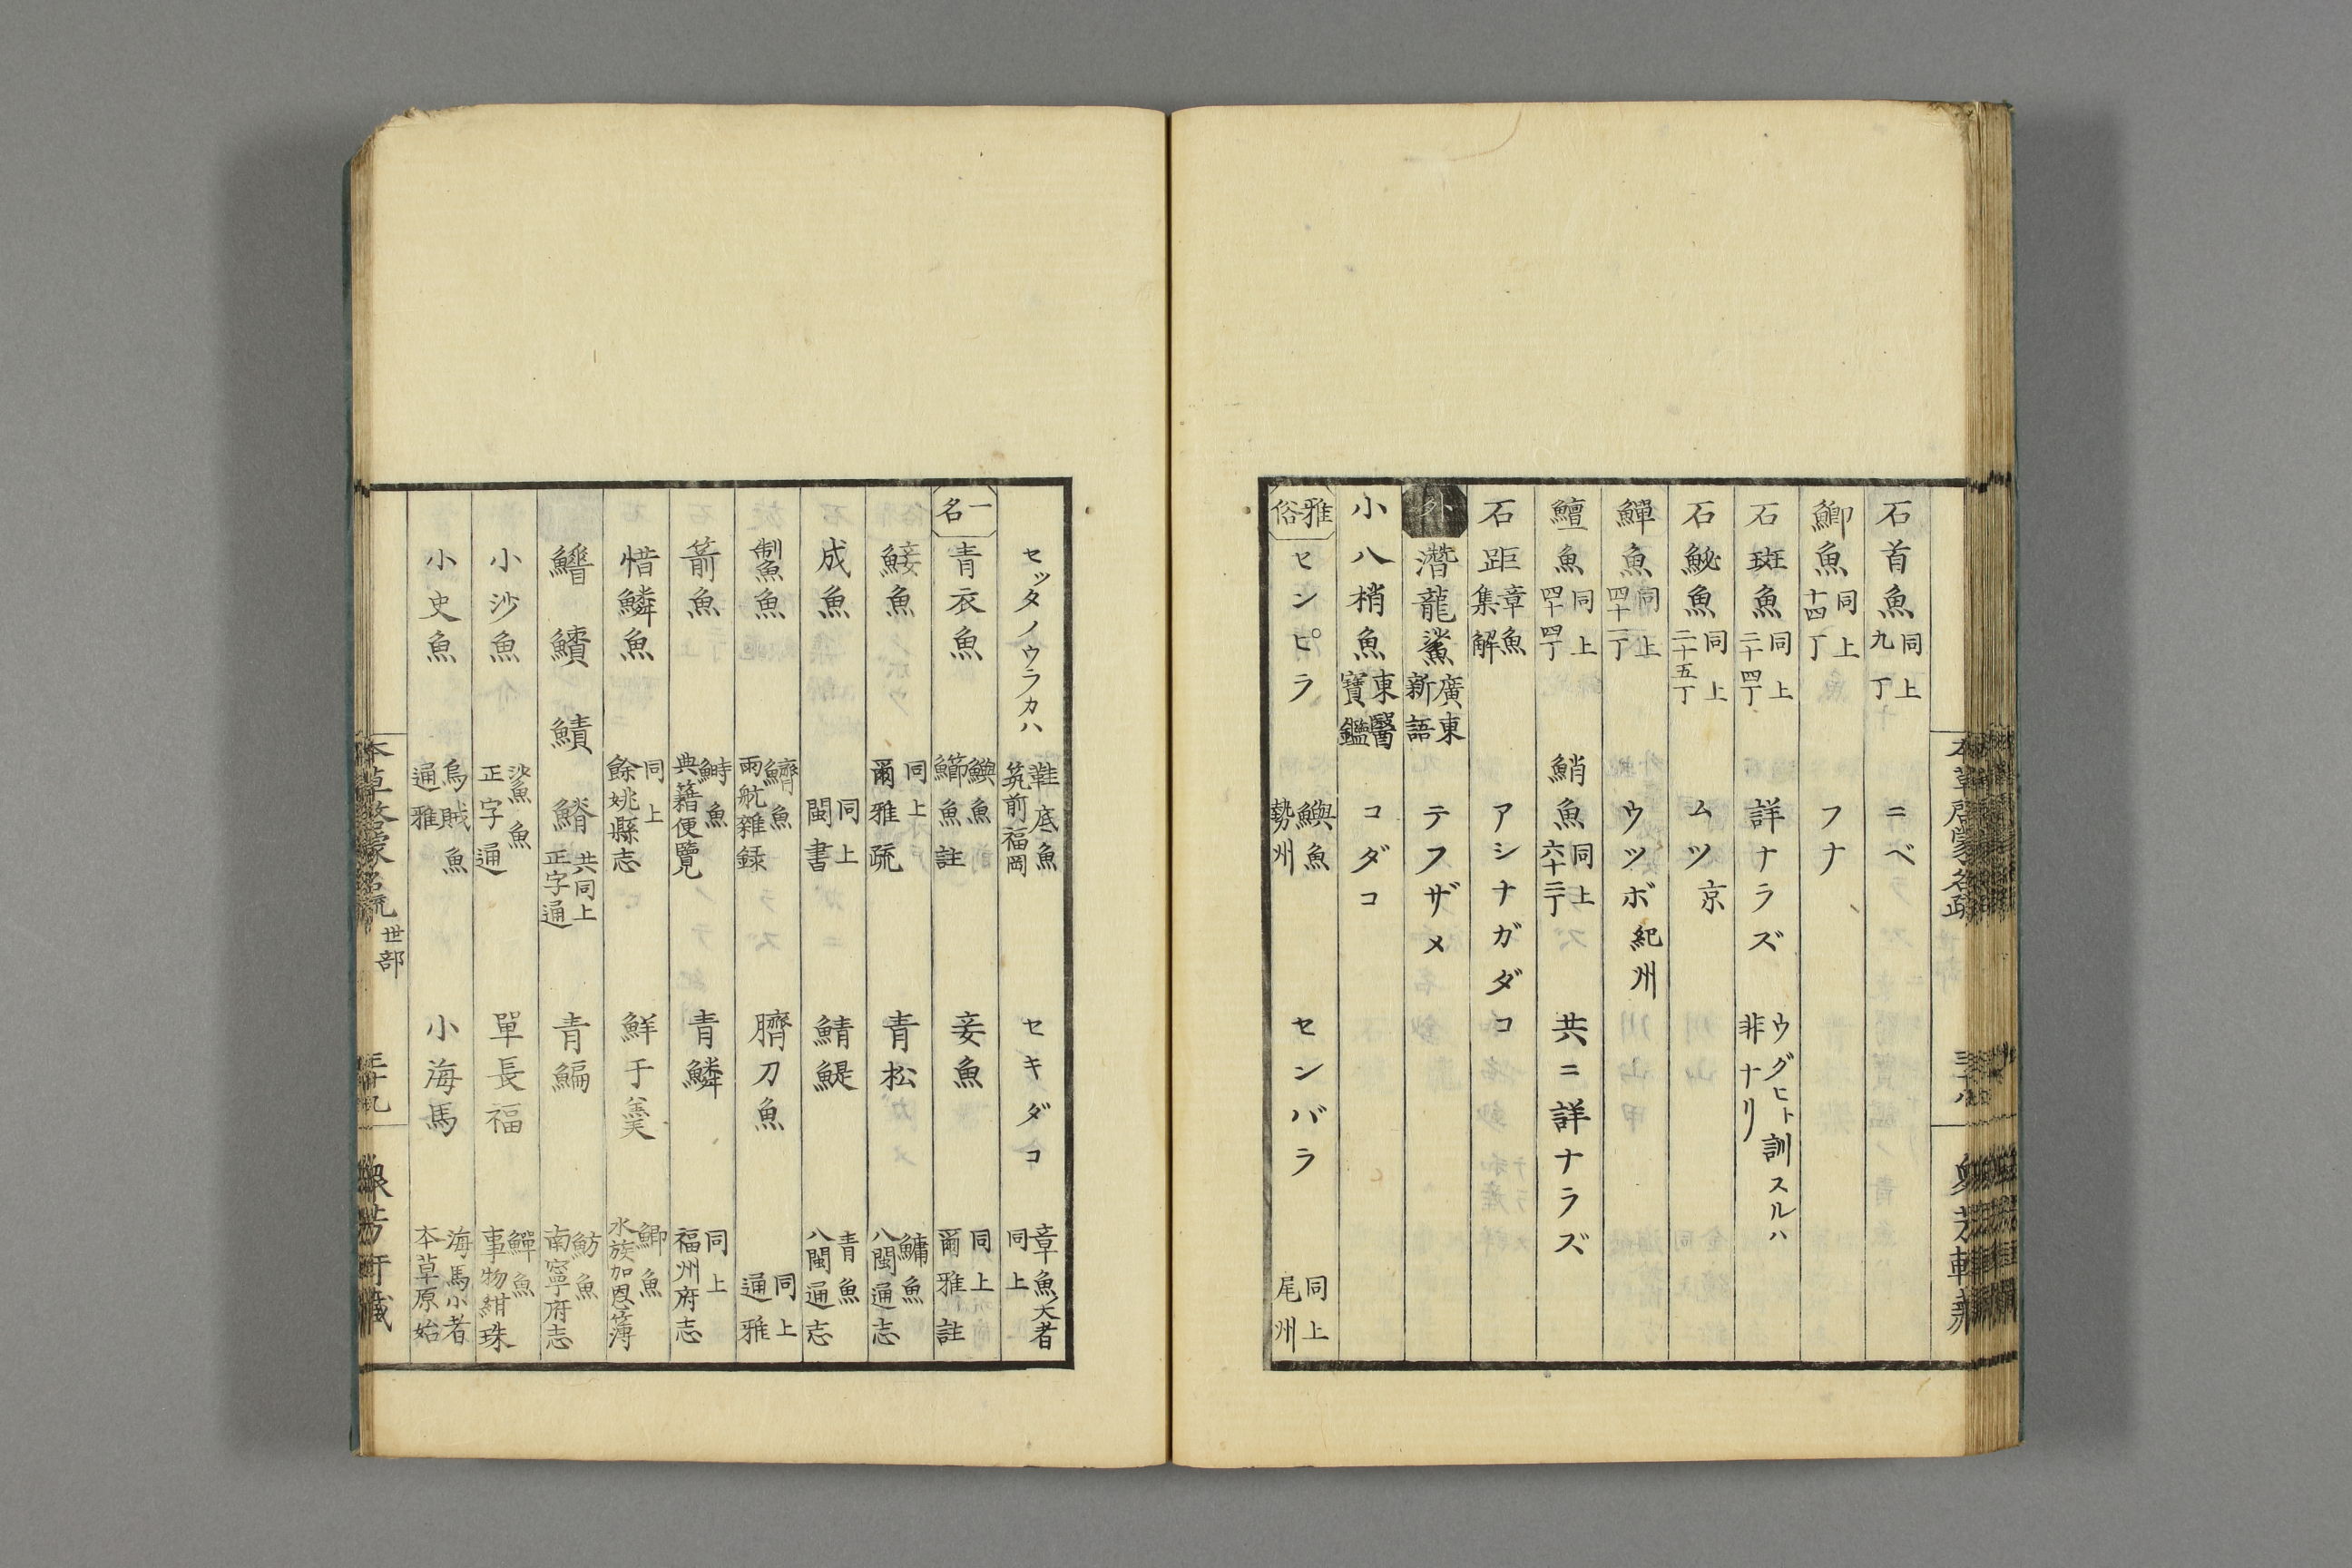 石首魚 同上 九丁 ニベ
鯽魚 同上 十四丁 フナ
石斑魚 同上 二十四丁 詳ナラズ ウグヒト訓スルハ非ナリ
石鮅魚 同上 二十五丁 ムツ 京
鱓魚 同上 四十二丁 ウツボ 紀州
鱣魚 同上 四十四丁 鮹魚 同上 六十三丁 共ニ詳ナラズ
石距 章魚集解 アシナガダコ
外 潛龍鯊 廣東新語 テフザメ
小八梢魚 東醫寶鑑 コダコ
雅俗 センピラ 鱮魚 勢州 センバラ 同上 尾州
セッタノウラカハ 鞋底魚 筑前福岡 セキダコ 章魚大者 同上
一名 青衣魚 鱮魚 鯽魚註 妾魚 同上 爾雅註
鯜魚 同上 爾雅疏 青松 鱅魚 八閩通志
成魚 同上 閩書 鯖鯷 青魚 八閩通志
鮆魚 鱭魚 雨航雜録 臍刀魚 同上 通雅
箭魚 鰣魚 典籍便覽 青鱗 同上 福州府志
惜鱗魚 同上 餘姚縣志 鮮于羹 鯽魚 水族加恩簿
鱛 鱝 鰿 鰆 共同上 正字通 青鯿 魴魚 南寧府志
小沙魚 鯊魚 正字通 單長福 鱓魚 事物紺珠
小史魚 烏賊魚 通雅 小海馬 海馬小者 本草原始
本草啓蒙名疏 世部